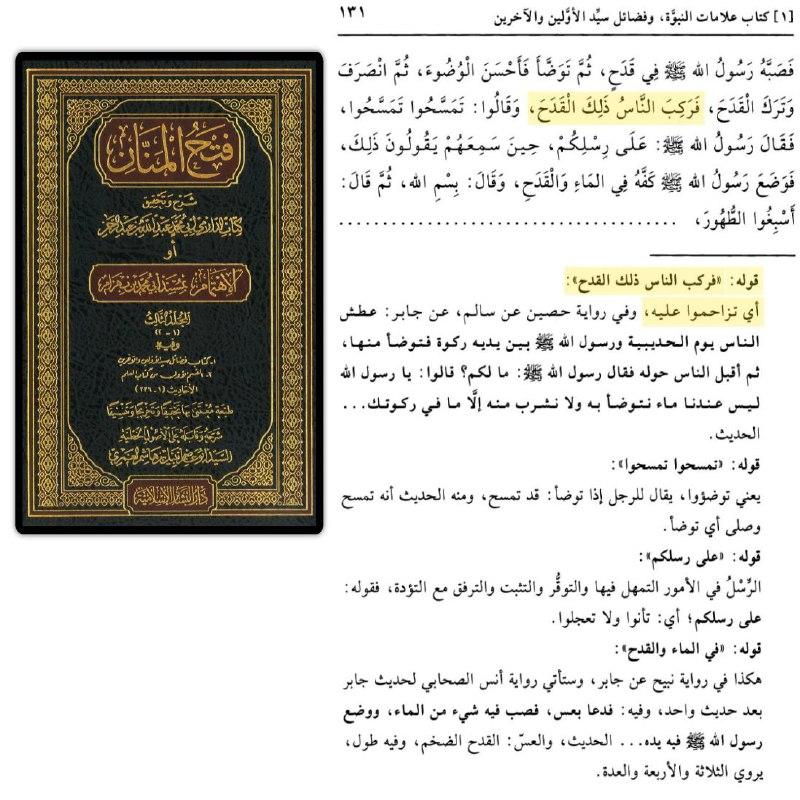 [١] كتاب علامات النبوَّة، وفضائل سيِّد الأوَّلين والآخرين
١٣١
فَصَبَّهُ رَسُولُ الله ﷺ فِي قَدَحٍ، ثُمَّ تَوَضَّأَ فَأَحْسَنَ الْوُضُوءَ، ثُمَّ انْصَرَفَ
وَتَرَكَ الْقَدَحَ، فَرَكِبَ النَّاسُ ذَلِكَ الْقَدَحَ، وَقَالُوا: تَمَسَّحُوا تَمَسَّحُوا،
فَقَالَ رَسُولُ الله ﷺ: عَلَى رِسْلِكُمْ، حِينَ سَمِعَهُمْ يَقُولُونَ ذَلِكَ،
فَوَضَعَ رَسُولُ الله ﷺ كَفَّهُ فِي المَاءِ وَالْقَدَحِ، وَقَالَ: بِسْمِ الله، ثُمَّ قَالَ:
أَسْبِغُوا الطُّهُورَ، ......................................
قوله: «فركب الناس ذلك القدح»:
أي تزاحموا عليه، وفي رواية حصين عن سالم، عن جابر: عطش
الناس يوم الحديبية ورسول الله ﷺ بين يديه ركوة فتوضأ منها،
ثم أقبل الناس حوله فقال رسول الله ﷺ: ما لكم؟ قالوا: يا رسول الله
ليس عندنا ماء نتوضأ به ولا نشرب منه إلَّا ما في ركوتك...
الحديث.
قوله: «تمسحوا تمسحوا»:
يعني توضؤوا، يقال للرجل إذا توضأ: قد تمسح، ومنه الحديث أنه تمسح
وصلى أي توضأ.
قوله: «على رسلكم»:
الرِّسْلُ في الأمور التمهل فيها والتوقُّر والتثبت والترفق مع التؤدة، فقوله:
على رسلكم؛ أي: تأنوا ولا تعجلوا.
قوله: «في الماء والقدح»:
هكذا في رواية نبيح عن جابر، وستأتي رواية أنس الصحابي لحديث جابر
بعد حديث واحد، وفيه: فدعا بعس، فصب فيه شيء من الماء، ووضع
رسول الله ﷺ فيه يده... الحديث، والعسّ: القدح الضخم، وفيه طول،
يروي الثلاثة والأربعة والعدة.
فتح المنان
شرح وتحقيق
كتاب الدارمي أبي محمد عبد الله بن عبد الرحمن
أو
الاهتمام بمسند أبي محمد بن بهرام
المجلد الثالث
(١-٢)
وفيه
١. كتاب فضائل سيد الأولين والآخرين
٢. القسم الأول من كتاب العلم
الأحاديث (١-٢٣٦)
شرحه وقابله على الأصول الخطية
السيد أبو عاصم نبيل بن هاشم الغمري
دار البشائر الإسلامية